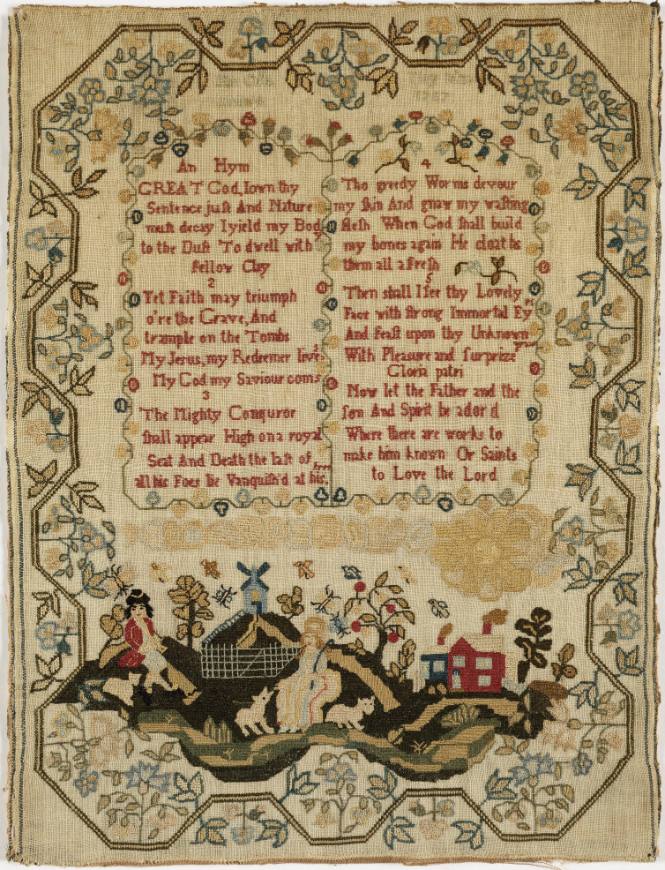 An Hym
GREAT God, I own thy
Sentence just And Nature
must decay I yield my Bod
to the Dust To dwell with
fellow Clay
2
Yet Faith may triumph
o're the Grave, And
trample on the Tombs
My Jesus, my Redeemer lives
My God my Saviour coms
3
The Mighty Conquror
shall appear High on a royal
Seat And Death the last of
all his Foes lie Vanquish'd at his feet
4
Tho greedy Worms devour
my skin And gnaw my wasting
flesh When God shall build
my bones again He cloaths
them all afresh
5
Then shall I see thy Lovely
Face with strong Immortal Eyes
And feast upon thy Unknown
With Pleasure and surprize
Gloria patri
Now let the Father and the
son And Spirit be ador'd
Where there are works to
make him known Or Saints
to Love the Lord